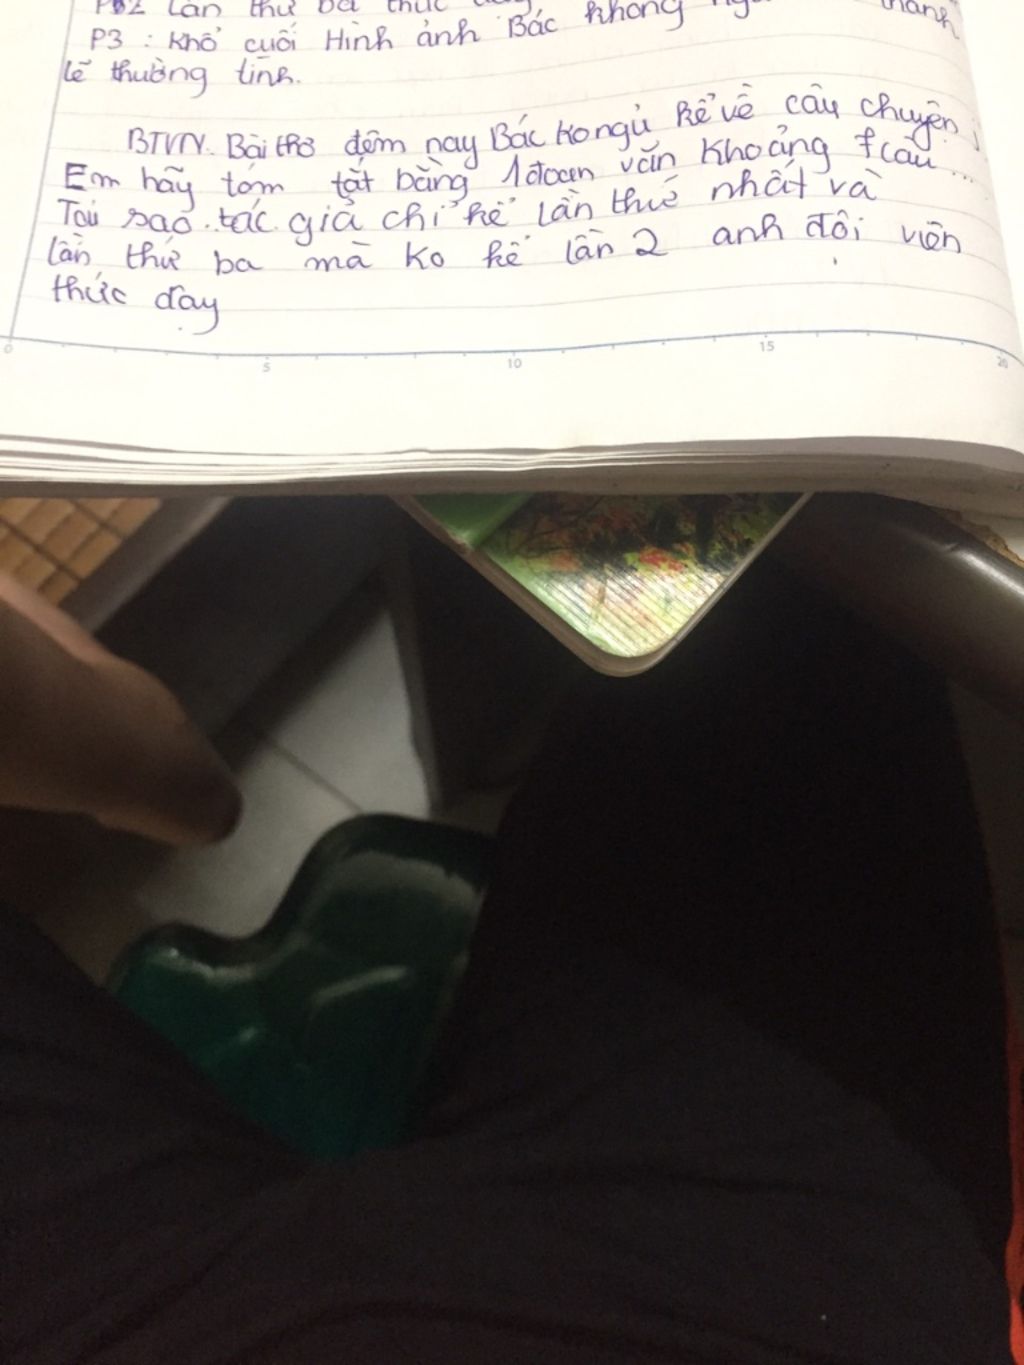 P2 Lần thứ ba thức
P3 : Khổ cuối Hình ảnh Bác không thành
lẽ thường tình.
BTVN. Bài thơ đêm nay Bác ko ngủ kể về câu chuyện
Em hãy tóm tắt bằng 1 đoạn văn Khoảng 7 câu ...
Tại sao tác giả chỉ kể lần thứ nhất và
lần thứ ba mà ko kể lần 2 anh đội viên
thức dậy
0 5 10 15 20